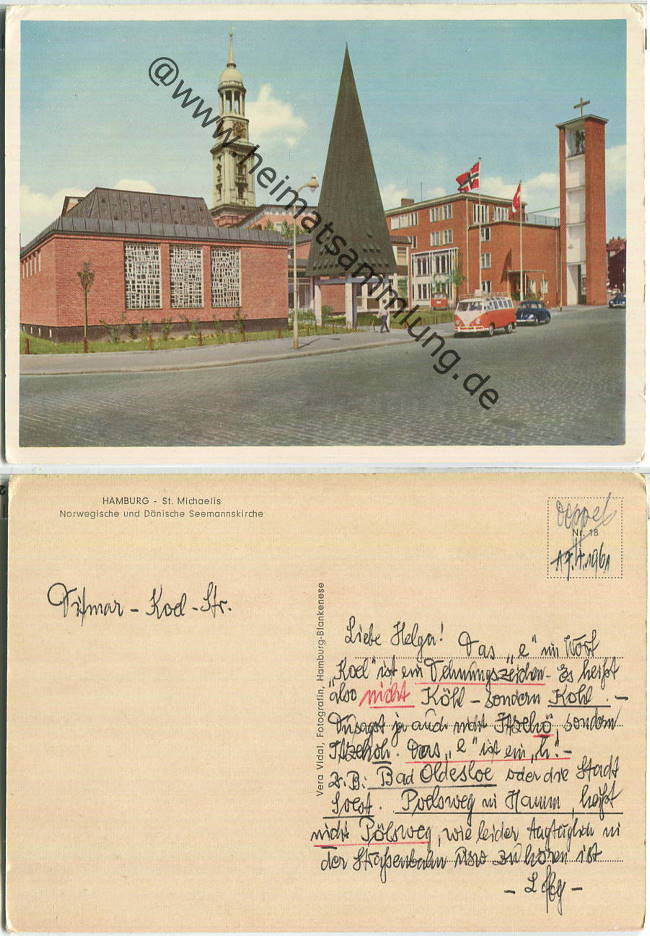 @www.heimatsammlung.de
HAMBURG - St. Michaelis
Norwegische und Dänische Seemannskirche
Nr. 18
17.X.1961
Ditmar - Koel - Str.
Vera Vidal, Fotografin, Hamburg-Blankenese
Liebe Helga! Das „e" im Wort
„Koel" ist ein Dehnungszeichen. Es heißt
also nicht Köhl - sondern Kohl. -
Du sagst ja auch nicht Itzehö, sondern
Itzehoh. Das „e" ist ein „h". -
z.B. Bad Oldesloe oder die Stadt
Soest. Poelsweg in Hamm, heißt
nicht Pölsweg, wie leider tagtäglich in
der Straßenbahn zu hören ist